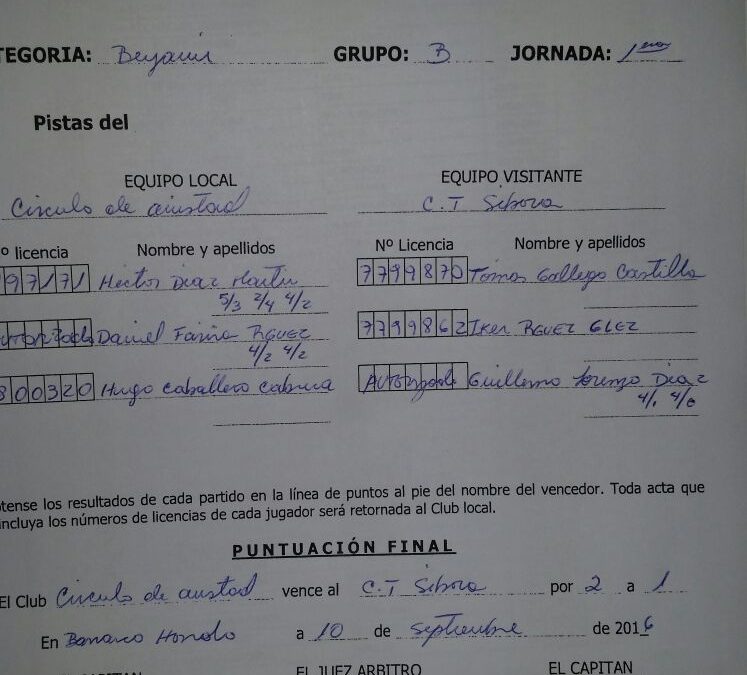 TEGORIA: Benjamin GRUPO: B JORNADA: 1era
Pistas del
EQUIPO LOCAL EQUIPO VISITANTE
Circulo de amistad C.T Sibora
º licencia Nombre y apellidos Nº Licencia Nombre y apellidos
97171 Hector Diaz Martin 7799870 Tomas Gallego Castilla
5/3 2/4 4/2
Daniel Fariña RGUEZ 7799862 IKER RGUEZ GLEZ
4/2 4/2
800320 Hugo Caballero Cabrera Autorizado Guillermo Lorenzo Diaz
4/1 4/0
ótense los resultados de cada partido en la línea de puntos al pie del nombre del vencedor. Toda acta que
incluya los números de licencias de cada jugador será retornada al Club local.
PUNTUACIÓN FINAL
El Club Circulo de amistad vence al C.T Sibora por 2 a 1
En Barranco Hondo a 10 de septiembre de 2016
CAPITAN EL JUEZ ARBITRO EL CAPITAN